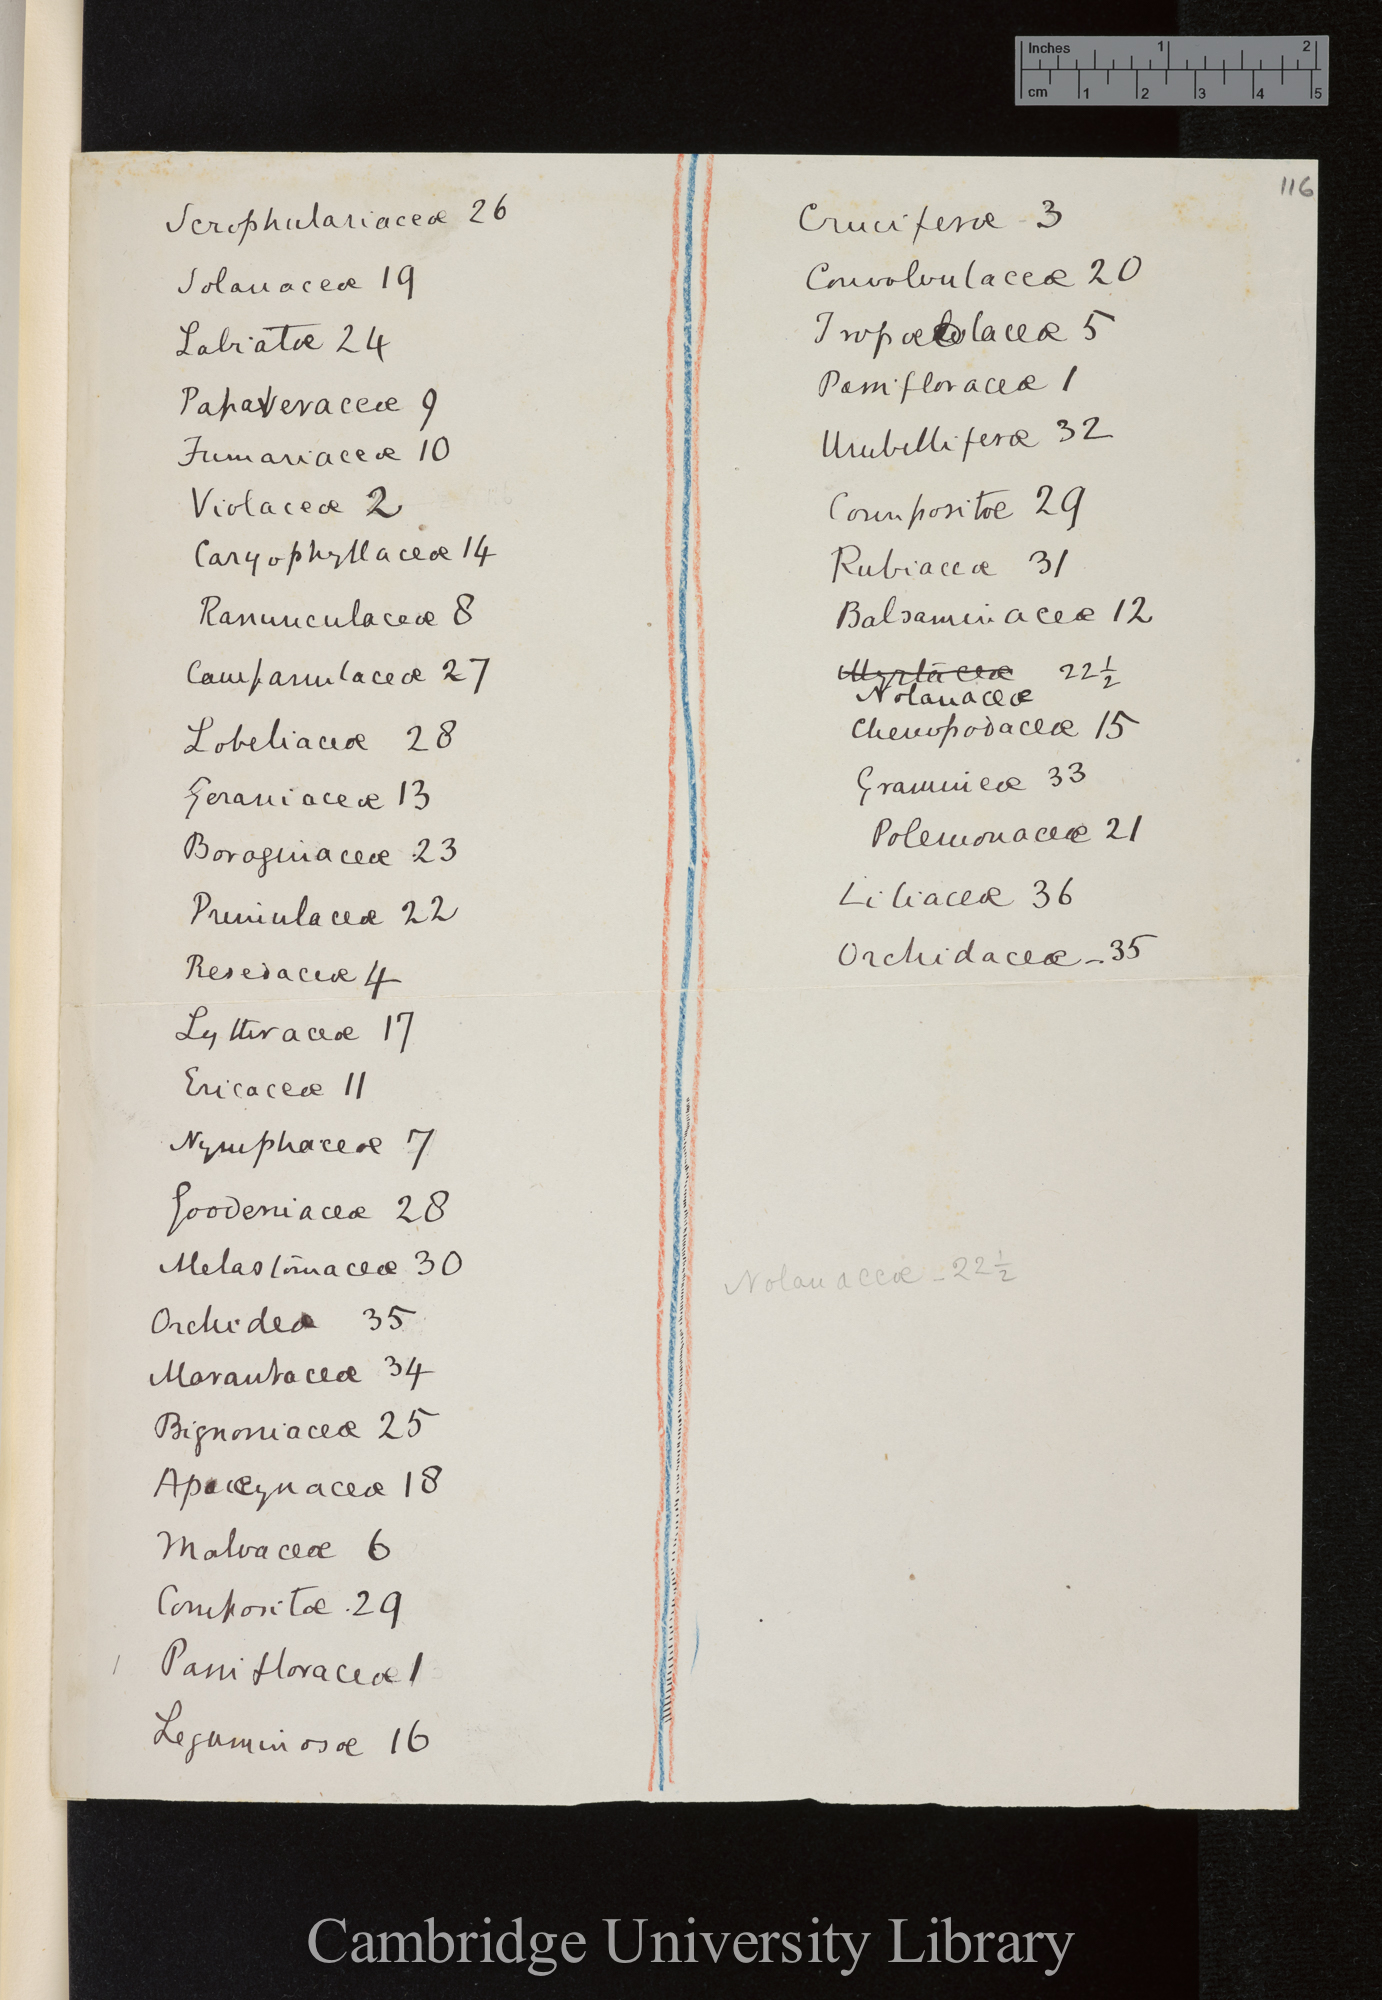 Inches 1 2
cm 1 2 3 4 5
116
Scrophulariaceæ 26
Solanaceæ 19
Labiatæ 24
Papaveraceæ 9
Fumariaceæ 10
Violaceæ 2
Caryophyllaceæ 14
Ranunculaceæ 8
Campanulaceæ 27
Lobeliaceæ 28
Geraniaceæ 13
Boraginaceæ 23
Primulaceæ 22
Resedaceæ 4
Lythraceæ 17
Ericaceæ 11
Nymphaceæ 7
Goodeniaceæ 28
Melastomaceæ 30
Orchideæ 35
Marantaceæ 34
Bignoniaceæ 25
Apocynaceæ 18
Malvaceæ 6
Compositæ .29
Passifloraceæ 1
Leguminosæ 16
Cruciferæ - 3
Convolvulaceæ 20
Tropæolaceæ 5
Passifloraceæ 1
Umbelliferæ 32
Compositæ 29
Rubiaceæ 31
Balsaminaceæ 12
Myrtaceæ 22½
Nolanaceæ
Chenopodaceæ 15
Gramineæ 33
Polemonaceæ 21
Liliaceæ 36
Orchidaceæ - 35
Nolanaceæ - 22½
Cambridge University Library